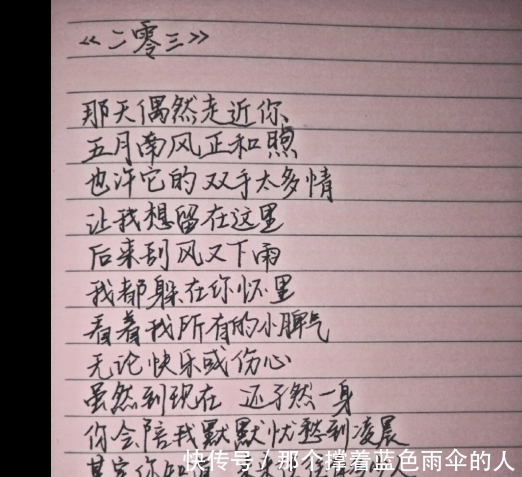 《二零三》
那天偶然走近你
五月南风正和煦
也许它的双手太多情
让我想留在这里
后来刮风又下雨
我都躲在你怀里
看着我所有的小脾气
无论快乐或伤心
虽然到现在 还孑然一身
你会陪我默默忧愁到凌晨
其实你知道
快传号/那个撑着蓝色雨伞的人